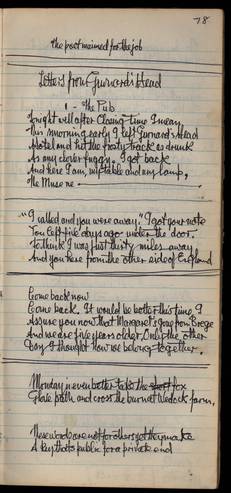 78
the poet maimed for the job
Letters from Gurnard's Head
1 - The Pub
Tonight well after Closing-time I mean
This morning early I left Gurnard's Head
Hotel and hit the frosty track as drunk
As any clover piggy. I got back
And here I am, my table and my lamp,
The Muse me
"I called and you were away." I got your note
You left five days ago under the door.
To think I was just thirty miles away
And you here from the other side of England
Come back now
Come back. It would be better this time. I
Assure you now that Margaret's gone from
And we are five years older. Only the other
Day I thought How we belong together.
Monday never better take the fox
Glove path and cross the burnet Wedock farm,
These words are not for others yet they make
A key that's public for a private end